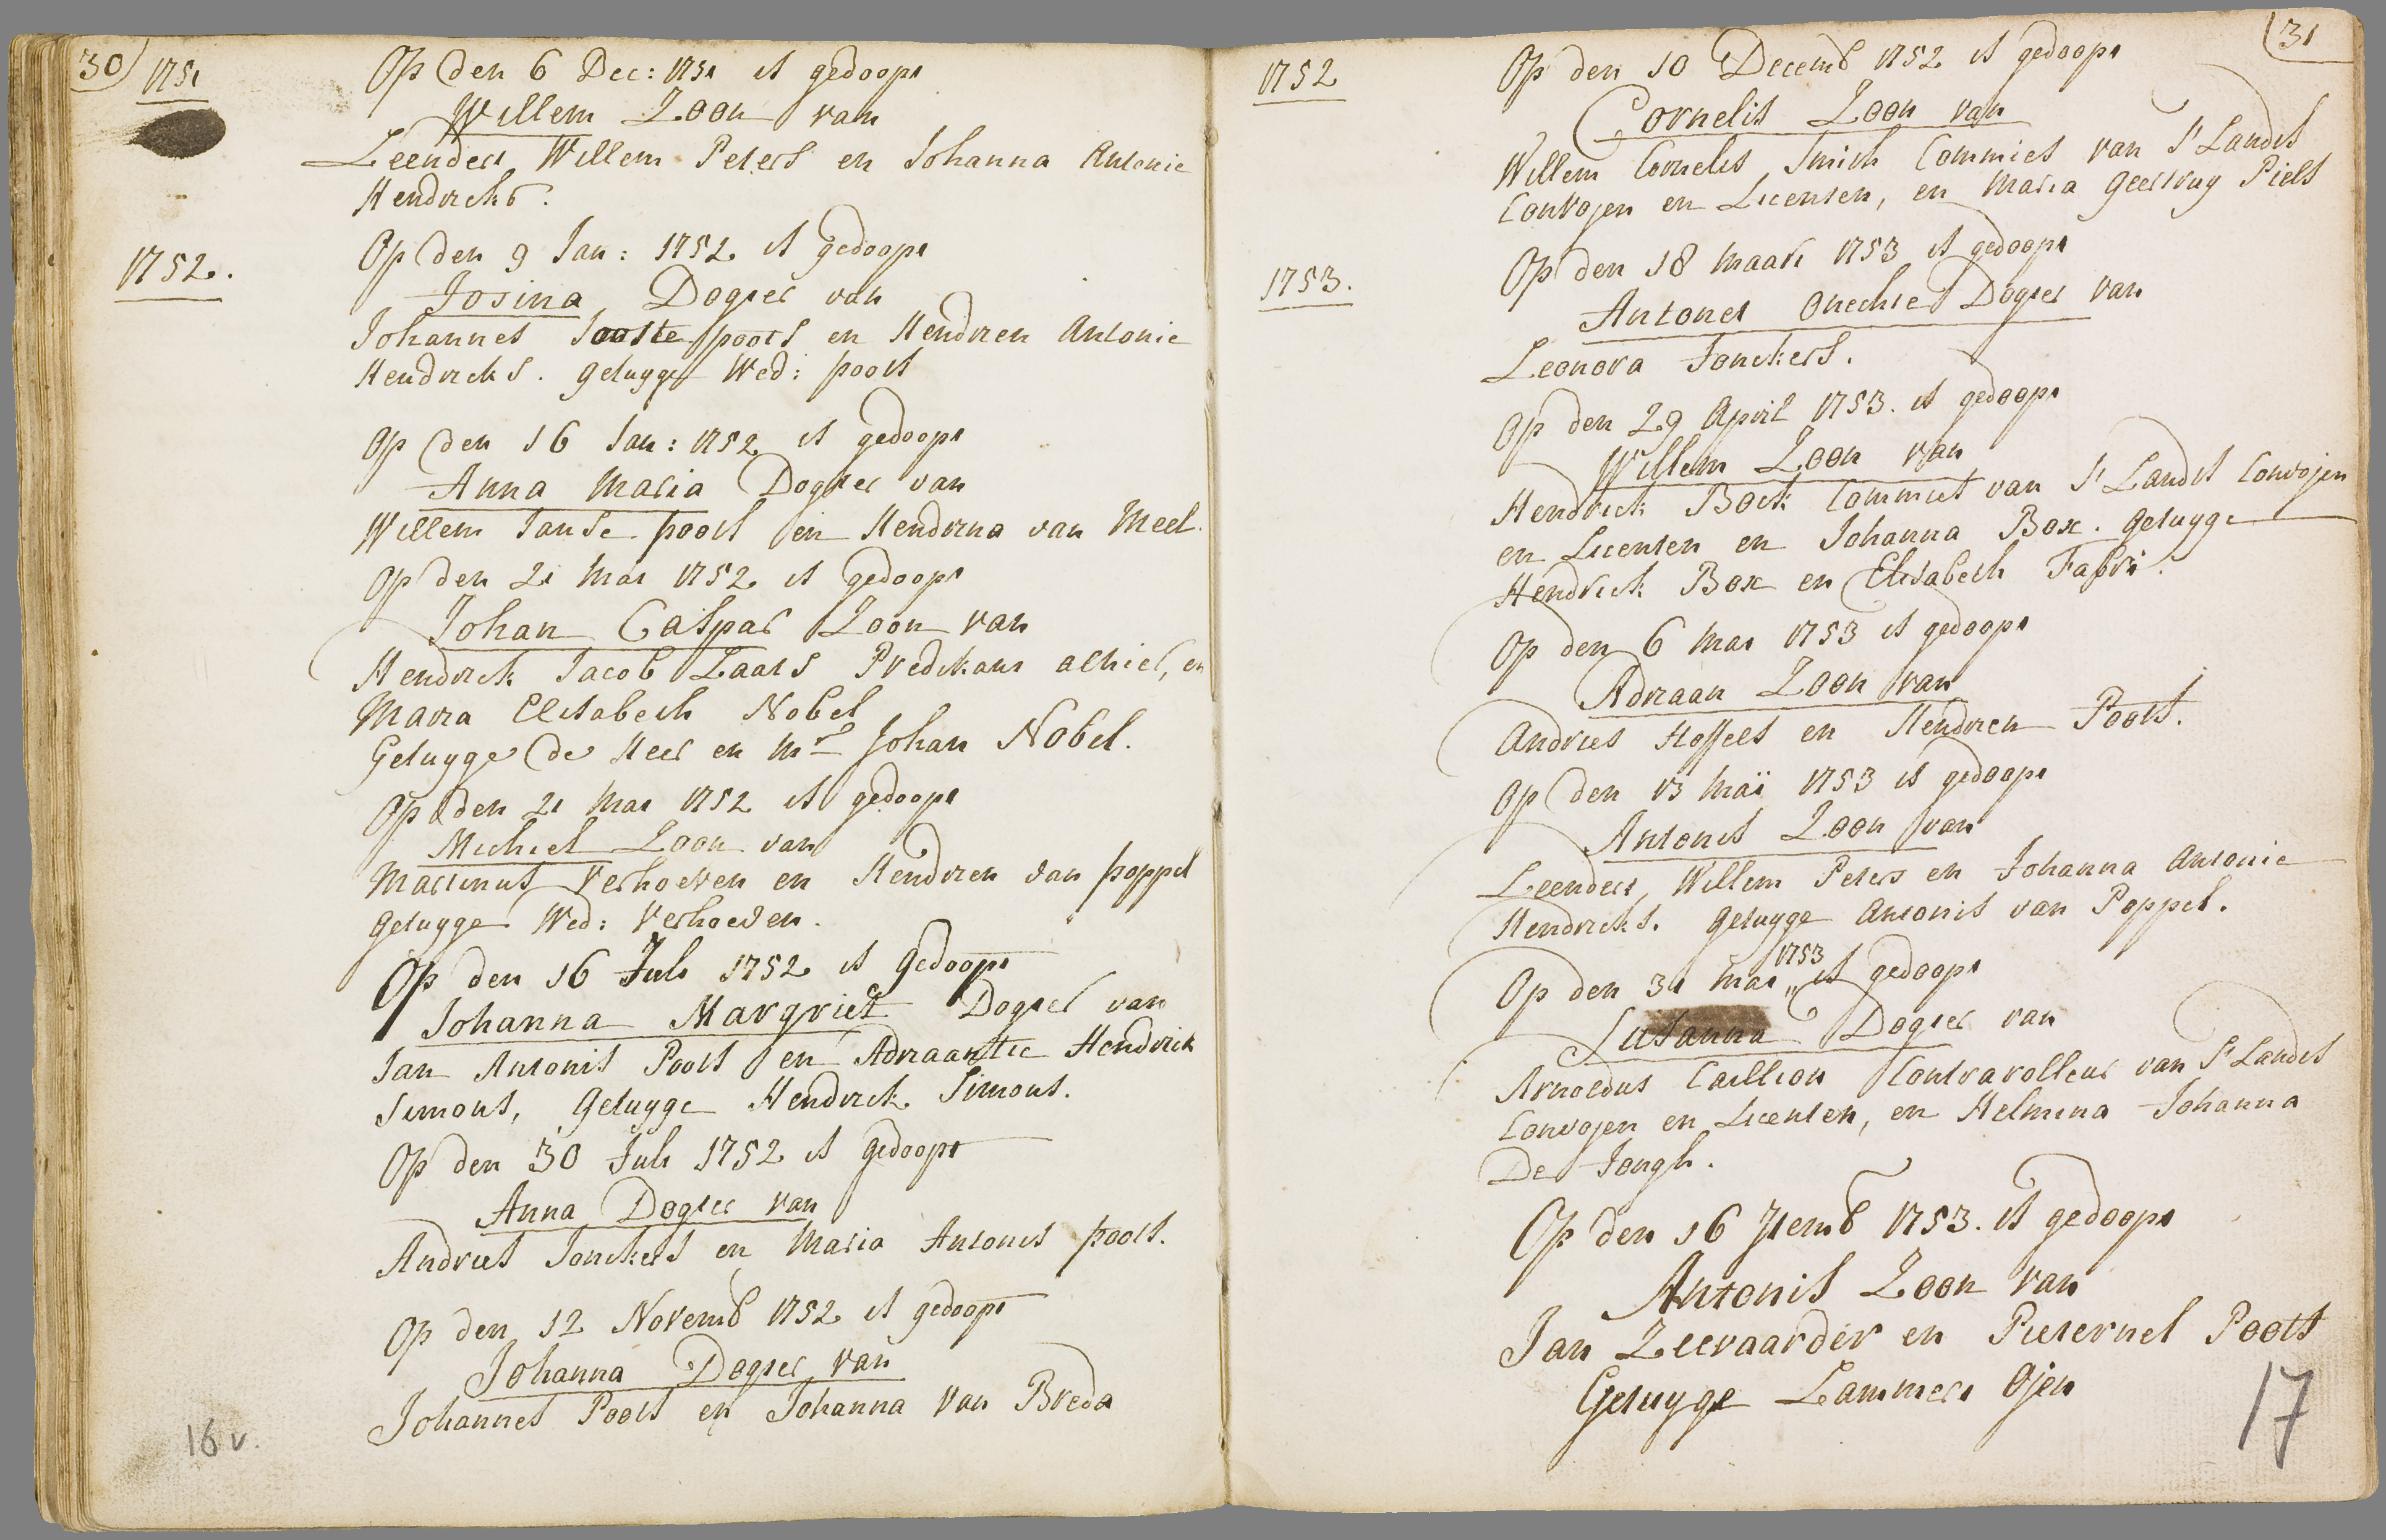 30
1751
Op den 6 Dec: 1751 is gedoopt
Willem Zoon van
Leendert Willem Peters en Johanna Antonie
Hendricks.
1752.
Op den 9 Jan: 1752 is gedoopt
Josina Dogter van
Johannes Jooste poots en Hendrien Antonie
Hendricks. getuyge Wed: poots
Op den 16 Jan: 1752 is gedoopt
Anna Maria Dogter van
Willem Janse poots en Hendrina van Meel.
Op den 21 Mai 1752 is gedoopt
Johan Caspar Zoon van
Hendrick Jacob Laats Predikant alhier, en
Maria Elisabeth Nobel
Getuyge de Heer en Mr Johan Nobel.
Op den 21 Mai 1752 is gedoopt
Michiel Zoon van
Martinus Verhoeven en Hendrien van poppel
getuyge Wed: Verhoeven.
Op den 16 Juli 1752 is Gedoopt
Johanna Margriet Dogter van
Jan Antonis Poots en Adriaantie Hendrick
Simons, Getuyge Hendrick Simons.
Op den 30 Juli 1752 is Gedoopt
Anna Dogter van
Andries Jonckers en Maria Antonis poots.
Op den 12 Novemb 1752 is gedoopt
Johanna Dogter van
Johannes Poots en Johanna van Breda
16 v.
31
1752
Op den 10 Decemb 1752 is gedoopt
Cornelis Zoon van
Willem Cornelis Smith Commies van 's Lands
Convojen en Licenten, en Maria Geertruy Piels
1753.
Op den 18 Maart 1753 is gedoopt
Antonet onechte Dogter van
Leonora Jonckers.
Op den 29 April 1753. is gedoopt
Willem Zoon van
Hendrick Bock Commies van 's Lands Convojen
en Licenten en Johanna Box. getuyge
Hendrick Box en Elisabeth Fabri.
Op den 6 Mai 1753 is gedoopt
Adriaan Zoon van
Andries Hoffees en Hendrien Poots.
Op den 13 Maii 1753 is gedoopt
Antonis Zoon van
Leendert Willem Peters en Johanna Antonie
Hendricks. getuyge Antonis van Poppel.
Op den 31 Mai 1753 is gedoopt
Susanna Dogter van
Arnoldus Caillion Contrarolleur van 's Lands
Convojen en Licenten, en Helmina Johanna
De Jongh.
Op den 16 7temb 1753. is gedoopt
Antonis Zoon van
Jan Zeevaarder en Pieternel Poots
Getuyge Lammert Ojen
17